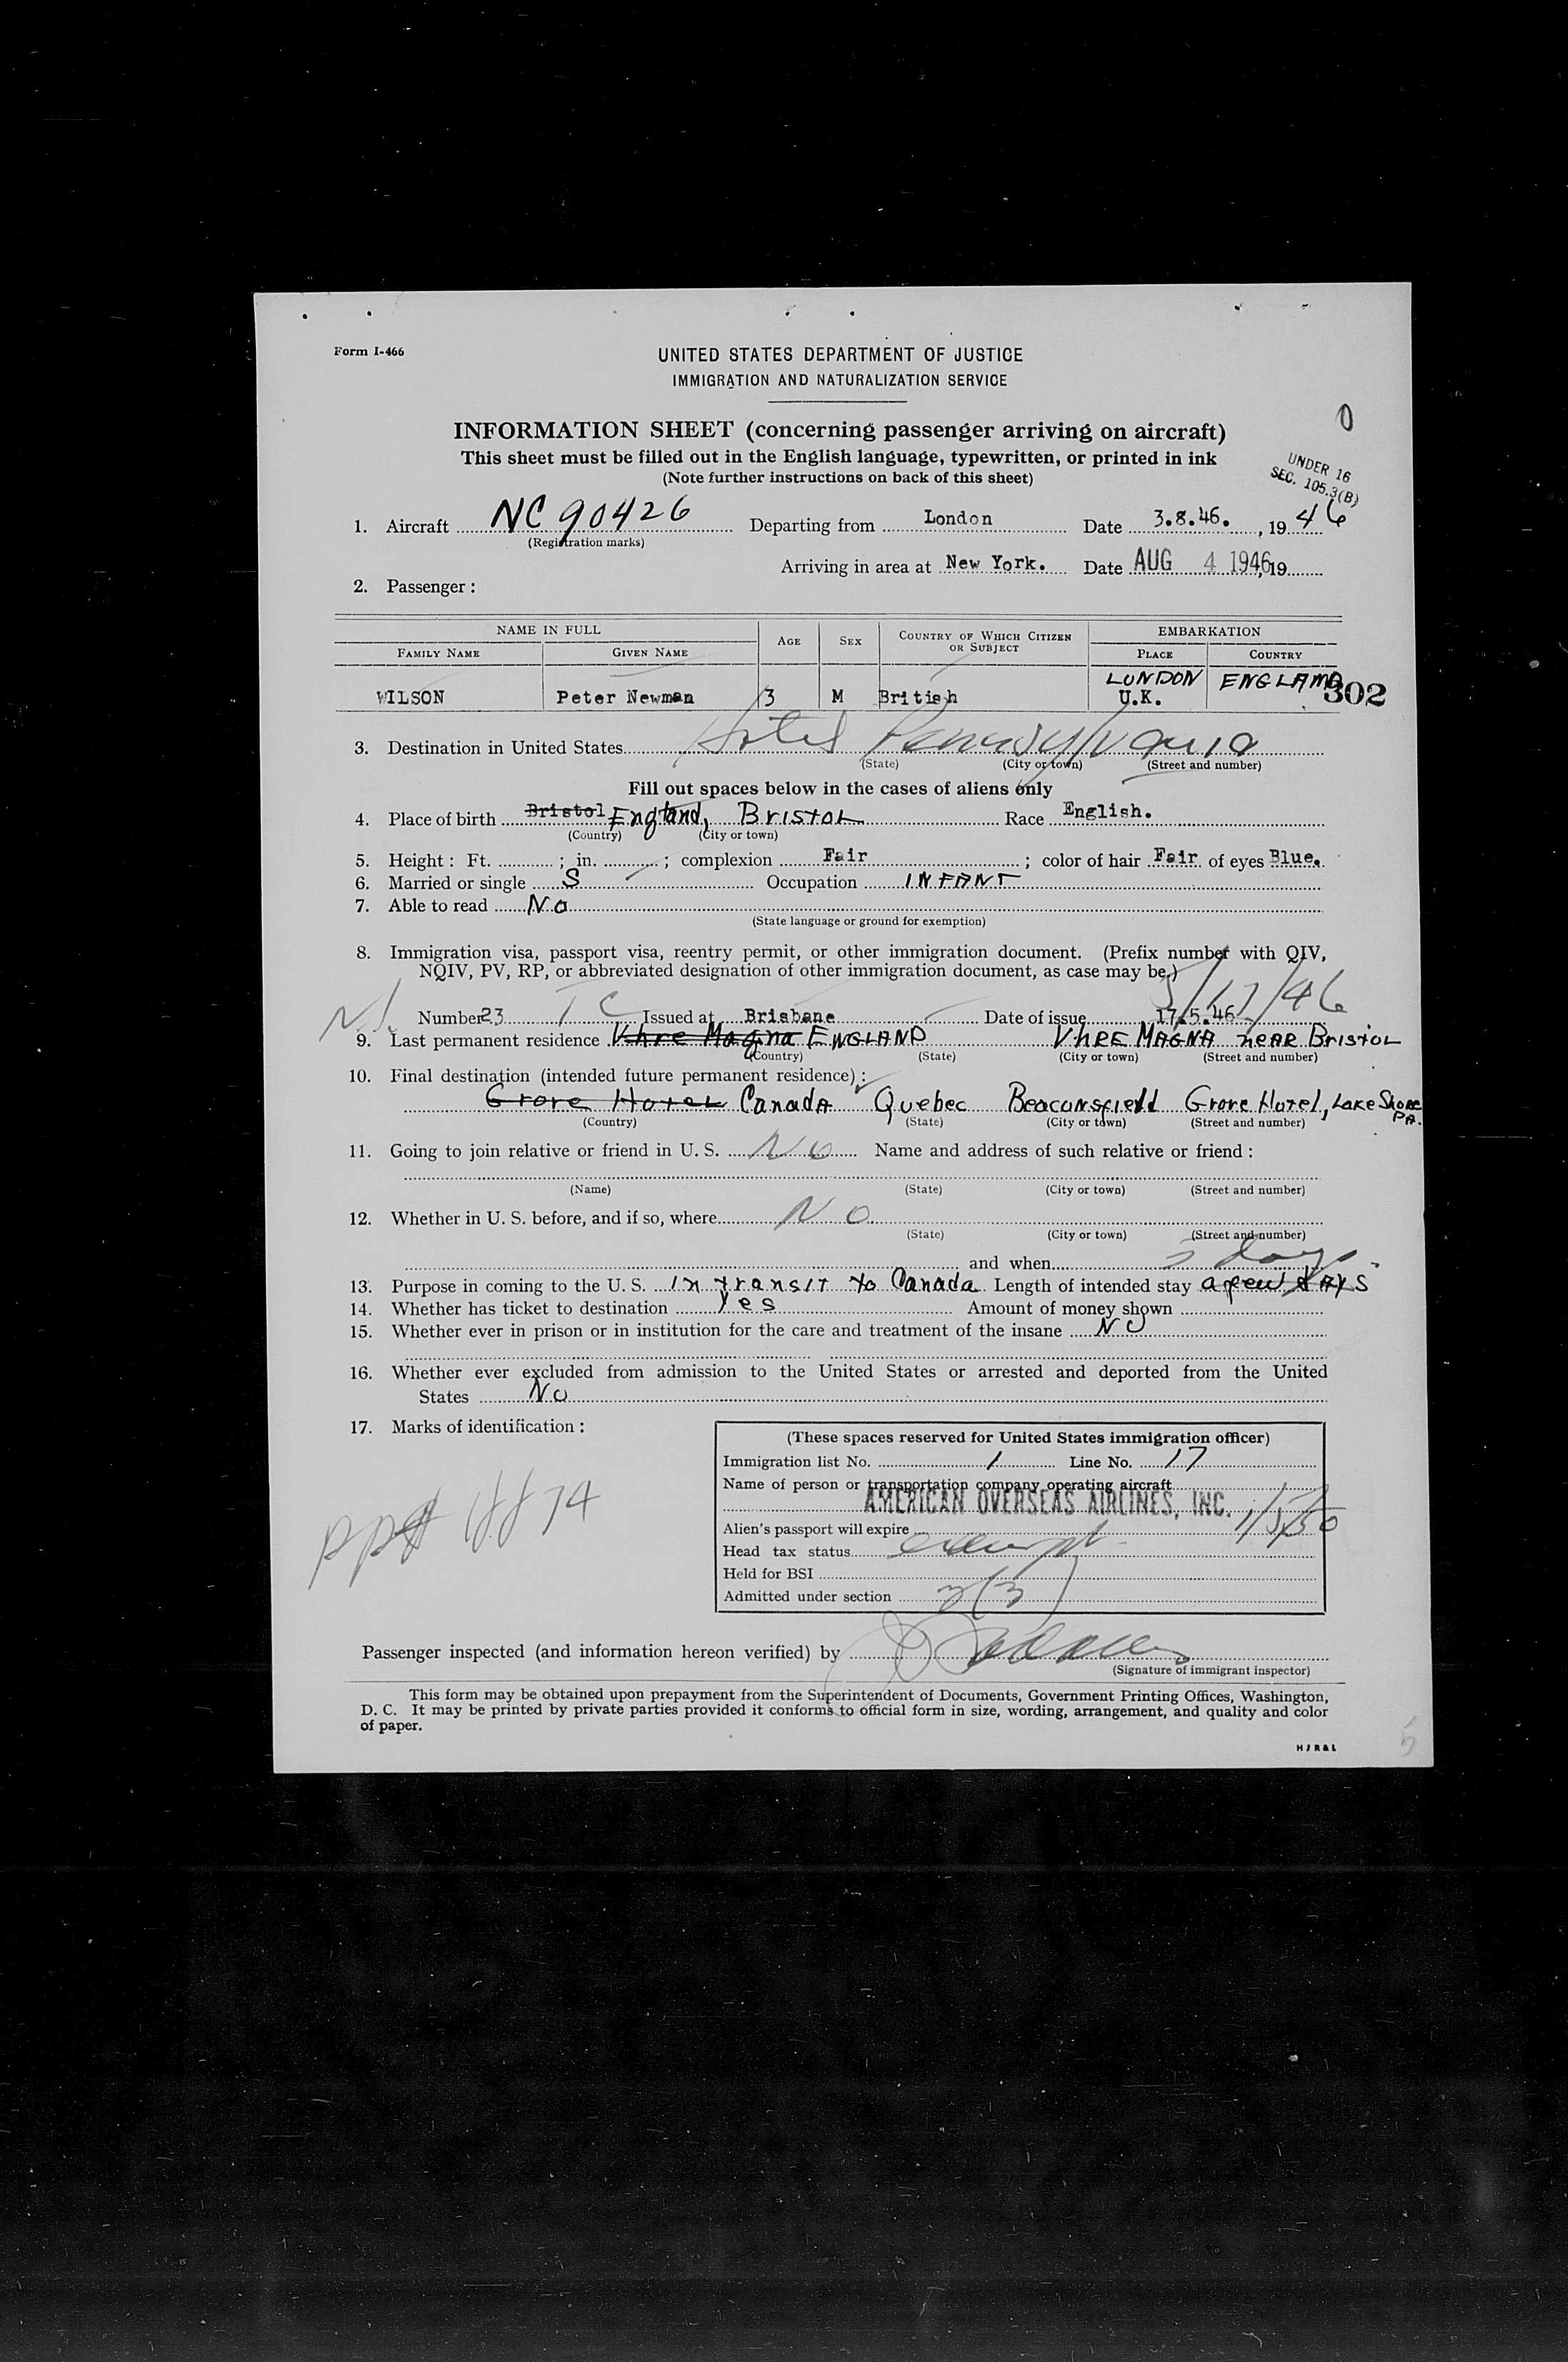 Form I-466
UNITED STATES DEPARTMENT OF JUSTICE
IMMIGRATION AND NATURALIZATION SERVICE
0
INFORMATION SHEET (concerning passenger arriving on aircraft)
This sheet must be filled out in the English language, typewritten, or printed in ink
(Note further instructions on back of this sheet)
UNDER 16
SEC. 105.3(B)
1. Aircraft NC 90426 Departing from London Date 3.8.46. , 19 46
(Registration marks)
Arriving in area at New York. Date AUG 4 1946 19
2. Passenger :
NAME IN FULL AGE SEX COUNTRY OF WHICH CITIZEN OR SUBJECT EMBARKATION
FAMILY NAME GIVEN NAME PLACE COUNTRY
LONDON ENGLAND
WILSON Peter Newman 3 M British U.K. 302
3. Destination in United States Hotel Pennsylvania
(State) (City or town) (Street and number)
Fill out spaces below in the cases of aliens only
4. Place of birth Bristol England, Bristol Race English.
(Country) (City or town)
5. Height : Ft. ; in. ; complexion Fair ; color of hair Fair of eyes Blue.
6. Married or single S Occupation INFANT
7. Able to read No
(State language or ground for exemption)
8. Immigration visa, passport visa, reentry permit, or other immigration document. (Prefix number with QIV,
NQIV, PV, RP, or abbreviated designation of other immigration document, as case may be.)
5/17/46
Number 23 TC Issued at Brisbane Date of issue 17.5.46
9. Last permanent residence Vhre Magna ENGLAND VhRE MAGNA neAR BRISTOL
(Country) (State) (City or town) (Street and number)
10. Final destination (intended future permanent residence) :
Grove Hotel Canada Quebec Beaconsfield Grove Hotel, Lake Shore
(Country) (State) (City or town) (Street and number)
11. Going to join relative or friend in U. S. No Name and address of such relative or friend :
(Name) (State) (City or town) (Street and number)
12. Whether in U. S. before, and if so, where No
(State) (City or town) (Street and number)
and when days
13. Purpose in coming to the U. S. In transit to Canada Length of intended stay a few DAYS
14. Whether has ticket to destination Yes Amount of money shown
15. Whether ever in prison or in institution for the care and treatment of the insane No
16. Whether ever excluded from admission to the United States or arrested and deported from the United
States No
17. Marks of identification :
(These spaces reserved for United States immigration officer)
Immigration list No. 1 Line No. 17
Name of person or transportation company operating aircraft
AMERICAN OVERSEAS AIRLINES, INC.
Alien's passport will expire 1/5/50
Head tax status exempt
Held for BSI
Admitted under section 3(3)
Passenger inspected (and information hereon verified) by
(Signature of immigrant inspector)
This form may be obtained upon prepayment from the Superintendent of Documents, Government Printing Offices, Washington,
D. C. It may be printed by private parties provided it conforms to official form in size, wording, arrangement, and quality and color
of paper.
HJR&L
5